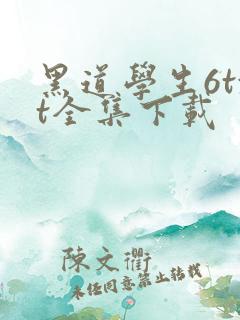 黑道學生6tx
t全集下載
陳文衢
未经同意禁止转载